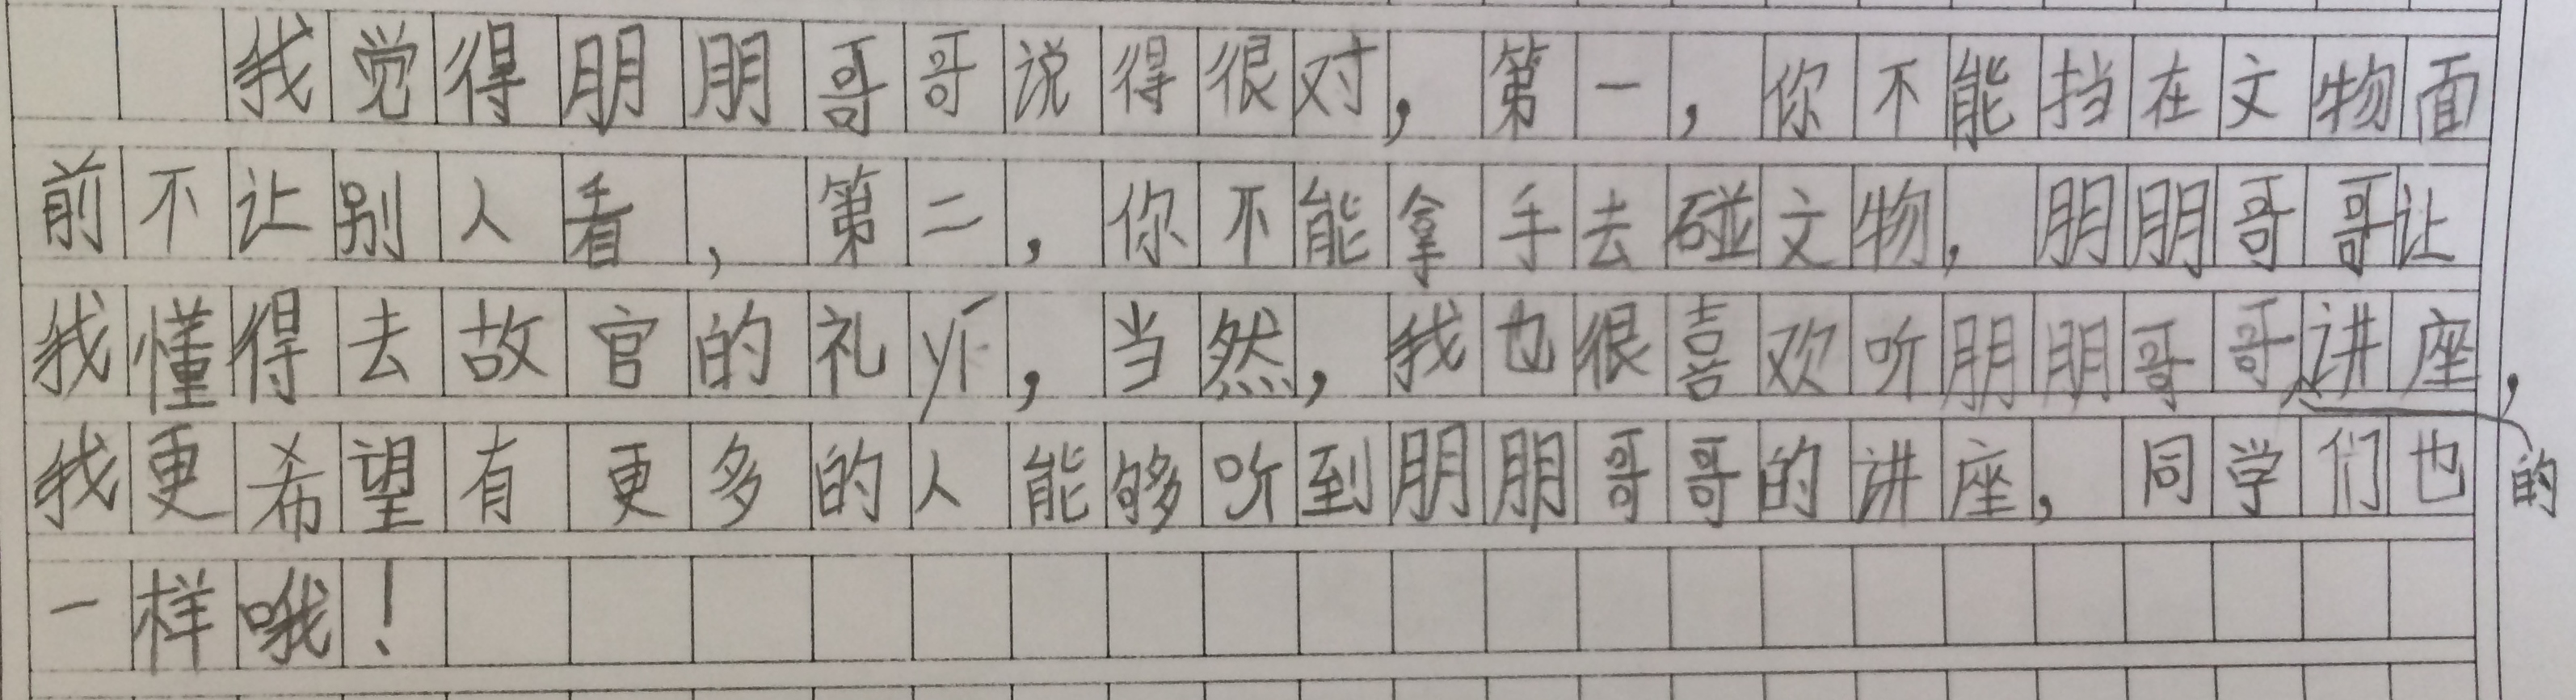 我觉得朋朋哥哥说得很对，第一，你不能挡在文物面
前不让别人看，第二，你不能拿手去碰文物，朋朋哥哥让
我懂得去故官的礼，当然，我也很喜欢听朋朋哥哥的讲座，
我更希望有更多的人能够听到朋朋哥哥的讲座，同学们也
一样哦！